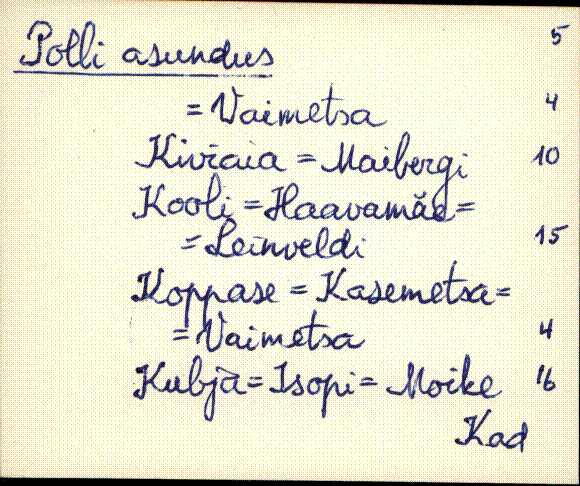 Polli asundus 5
= Vaimetsa 4
Kiviaia = Maibergi 10
Kooli = Haavamäe =
= Leinveldi 15
Koppase = Kasemetsa =
= Vaimetsa 4
Kubja = Isopi = Moike 16
Kad